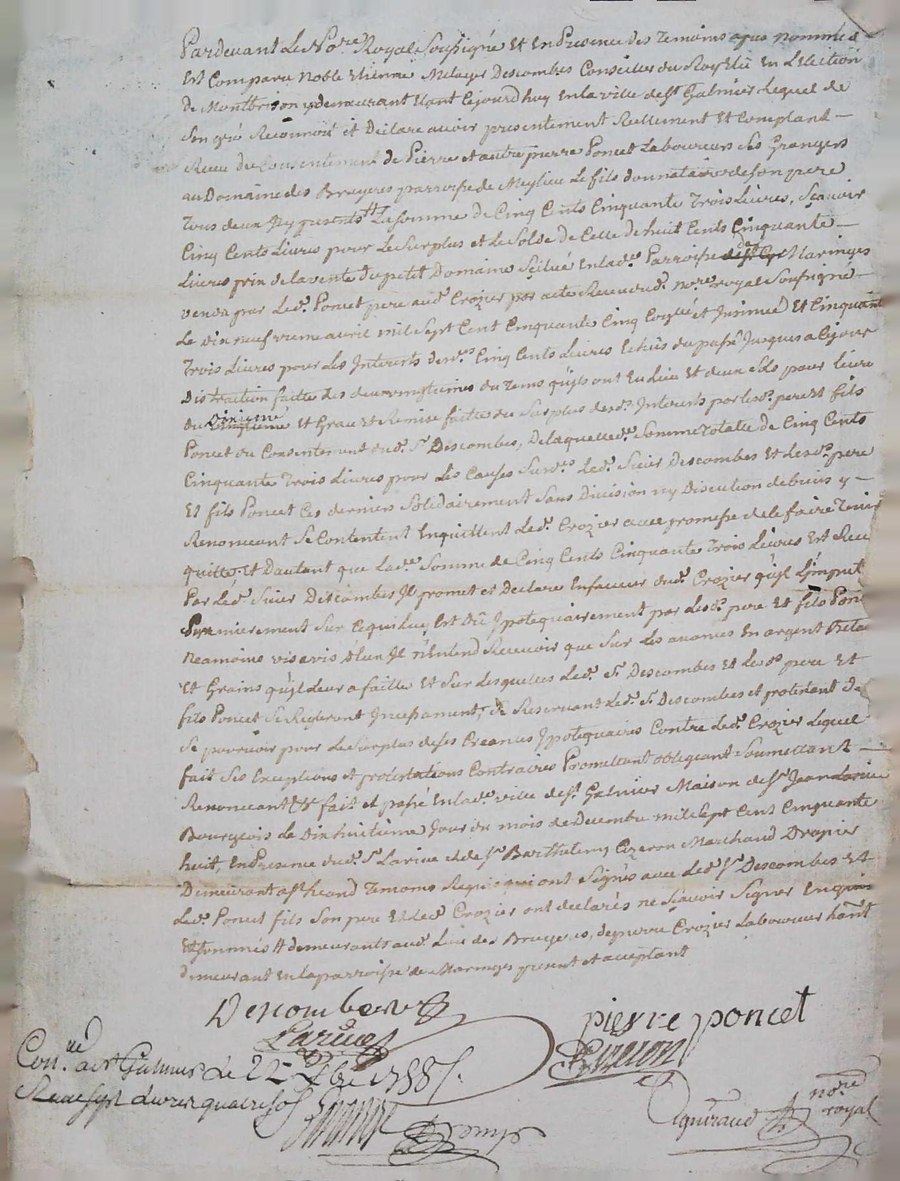 Pardevant Le No.re Royal Soussigné Et En Presence des Temoins apres nommés
Est Comparu Noble Etienne Melayer Descombes Conseiller du Roy Elû en L'election
de Montbrison y demeurant Etant Cejourdhuy En la ville de St. Galmier Lequel de
Son gré Reconnoit et Déclare avoir presentement Reellement Et Comptant
Receu du Consentement de Pierre et autre pierre Poncet Laboureurs Ses Grangers
au Domaine des Bruyeres parroisse de Meylieu Le fils donnataire de Son pere
Tous deux Icy presents La Somme de Cinq Cents Cinquante Trois Livres, Scavoir
Cinq Cents Livres pour Le Surplus et Le Solde de Celle de huit Cents Cinquante
Livres prix de la vente Du petit Domaine Scitué En lad.e Parroise de Maringes
vendu par Led. Poncet pere aud. Crozier par acte Receu dud. No.re royal Soussigné
Le dix neufvieme avril mil Sept Cent Cinquante Cinq Et Cinquante
Trois Livres pour Les Interests desd. Cinq Cents Livres Echûs du passé Jusques a Cejour
Distraction faitte des deux vingtiemes du Tems qu'ils ont Eu Lieu Et deux Sols pour Livre
du dixieme Et Grace et Remise faitte du Surplus desd. Interests par lesd. pere Et fils
Poncet du Consentement dud. Sr. Descombes, De laquelle Somme Totalle de Cinq Cents
Cinquante Trois Livres pour Les Causes Susd. Led. Sieur Descombes Et Lesd. pere
Et fils Poncet Ces derniers Solidairement Sans Division ny Discution de biens y
Renonceant Se Contentent Enquittent Led. Crozier avec promesse de le faire Tenir
quitte, Et Dautant que Lad. Somme de Cinq Cents Cinquante Trois Livres Est Receu
Par Led. Sieur Descombes Il promet et Declare En faveur dud. Crozier qu'Il L'Imput
Premierement Sur Ce qui Luy Est Dû Ipotequairement par Lesd. pere Et fils Pon
Neamoins vis avis d'Eux Il n'Entend Recevoir que Sur Les avances En argent
Et Grains qu'Il Leur a faitte Et Sur Lesquelles Led. Sr. Descombes Et Lesd. pere Et
fils Poncet Se Regleront Incessament, Se Reservant Led. Sr. Descombes et protestant De
Se pourvoir pour Le Surplus de Ses Creances Ipotequaires Contre Led. Crozier Lequel
fait Ses Exceptions et protestations Contraires Promettant obligeant Soumettant
Renonceant &c fait et passé En lad. ville de St. Galmier Maison de Sr. Jean Larive
Bourgeois Le Dixhuitieme Jour du mois de Decembre mil Sept Cent Cinquante
huit, En Presence dud. Sr. Larive et de Sr. Barthelemy Cizeron Marchand Drapier
Demeurant Temoins Requis qui ont Signés avec Led. Sr. Descombes Et
Led. Poncet fils Son pere Et Led. Crozier ont declarés ne Scavoir Signer Enquis
Et Sommis # demeurants aud. Lieu des Bruyeres, de pierre Crozier Laboureur
demeurant En la parroisse de Maringes present et acceptant
Descombes
pierre poncet
Larive
Cizeron
Con.lé a St Galmier Le 22 Xbre 1758
Receu Sept Livres quatre sols
no.re
royal